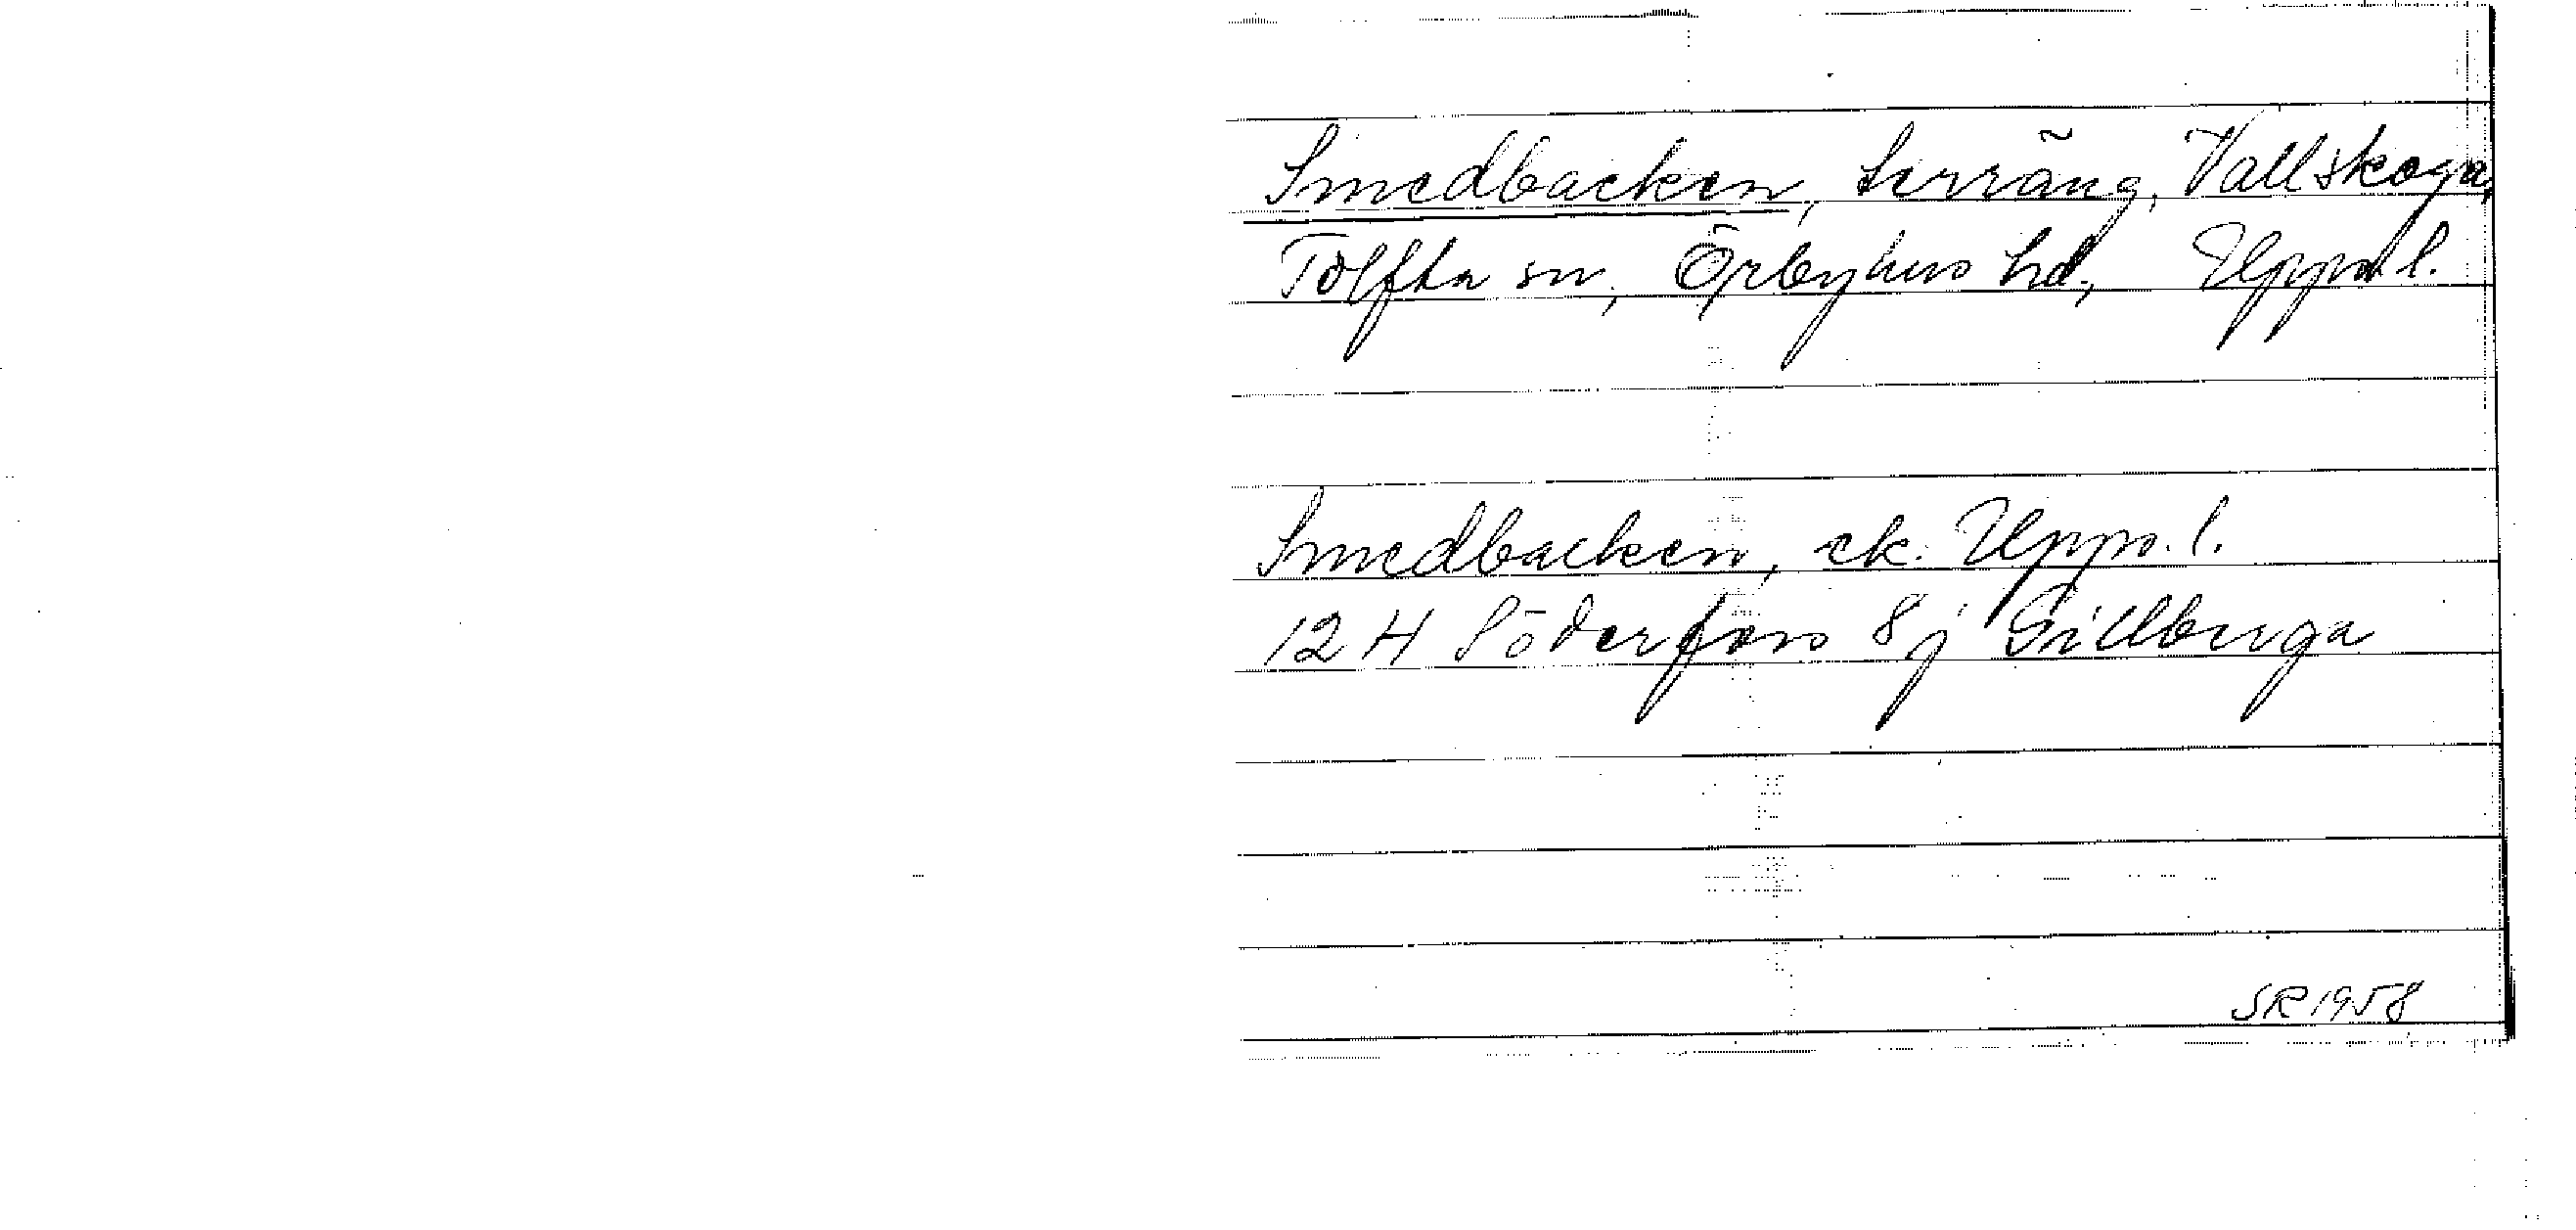 Smedbacken, terräng, Vallskoga,
Tolfta sn, Örbyhus hd, Upps. l.
Smedbacken, ek. Upps. l.
12 H Söderfors 8 j Gillberga
SR 1958